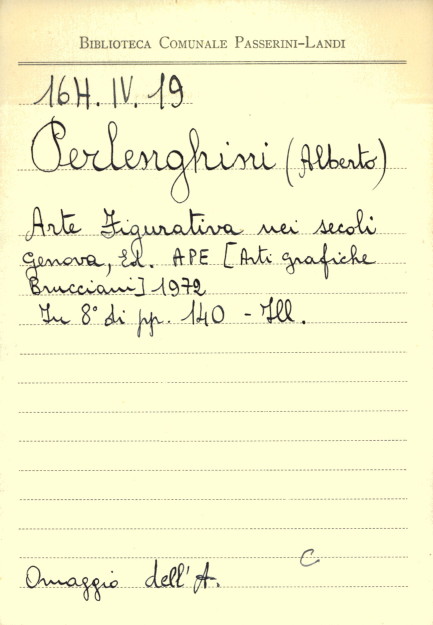 BIBLIOTECA COMUNALE PASSERINI-LANDI
16H. IV. 19
Perlenghini (Alberto)
Arte Figurativa nei secoli
Genova, Ed. APE [Arti grafiche
Brucciani] 1972
In 8° di pp. 140 - Ill.
C
Omaggio dell'A.